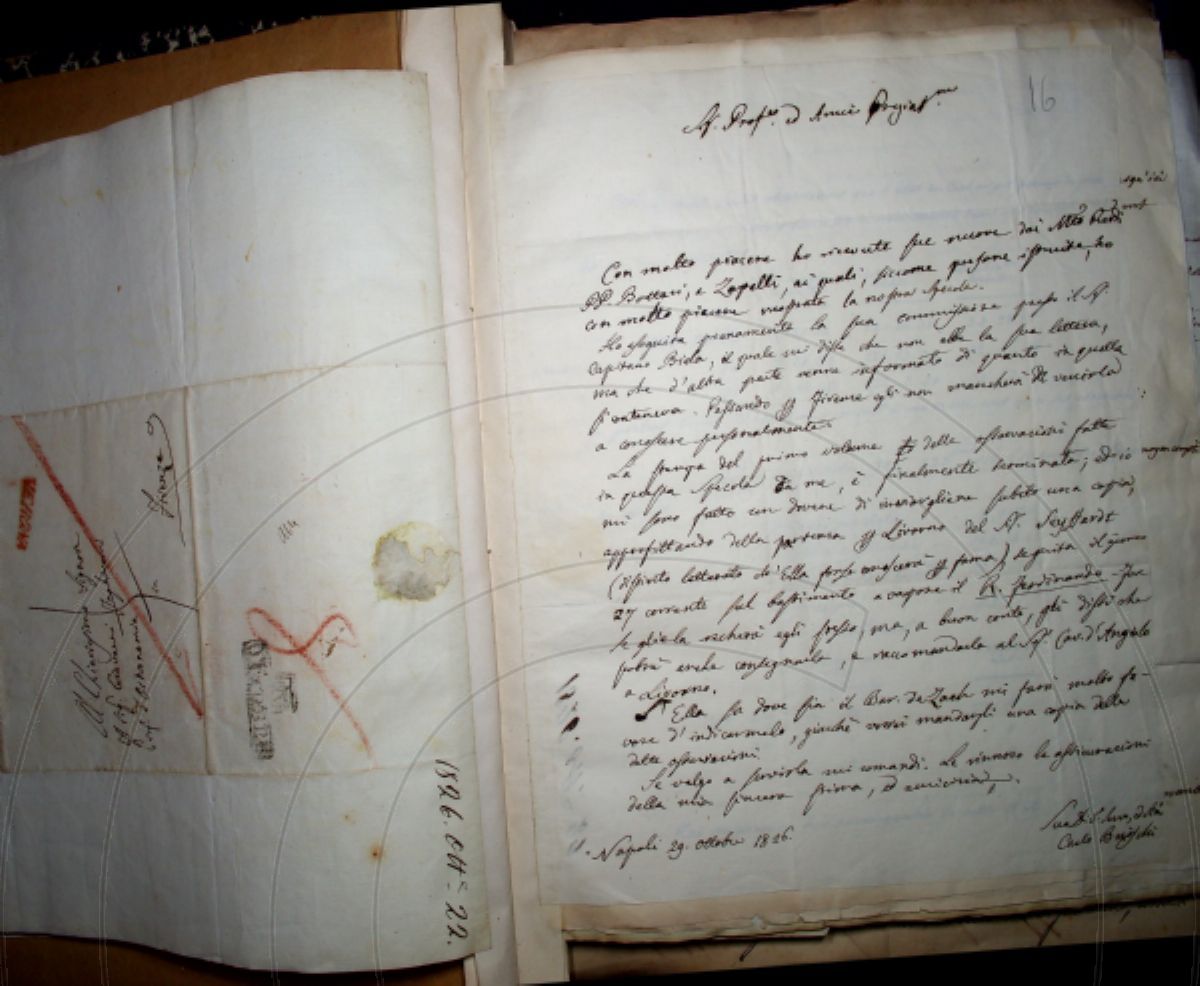 Al Chiarissimo Signore
in
Firenze
1826. Ott= 22.
16
Sig. Prof.re ed Amico Pregiat.mo
Con molto piacere ho ricevute sue nuove dai
PP. Bottari, e Zapelli, ai quali, siccome persone istruite, ho
con molto piacere mostrato la nostra Specola.
Ho eseguita pienamente la sua commissione presso il Sig.
Capitano Bida, il quale mi disse che non ebbe la sua lettera,
ma che d'altra parte venne informato di quanto in quella
si conteneva. Passando per Firenze egli non mancherà di venirla
a conoscere personalmente.
La stampa del primo volume delle osservazioni fatte
in questa Specola da me, è finalmente terminata; ed io
mi sono fatto un dovere di inviargliene subito una copia,
approfittando della partenza per Livorno del Sig. Seyffardt
(distinto letterato ch'Ella forse conoscerà per fama) seguita il giorno
27 corrente sul bastimento a vapore il R. Ferdinando. For
se gliela recherà egli stesso, ma, a buon conto, gli dissi che
potrà anche consegnarla, e raccomandarla al Sig. Cav. d'Angiolo
a Livorno.
Se Ella sa dove sia il Bar. de Zach mi farà molto fa-
vore d'indicarmelo, giacchè vorrei mandargli una copia delle
dette osservazioni.
Se valgo a servirla mi comandi. Le rinnovo le assicurazioni
della mia sincera stima, ed amicizia.
Napoli 29. ottobre 1826.
Carlo Brioschi